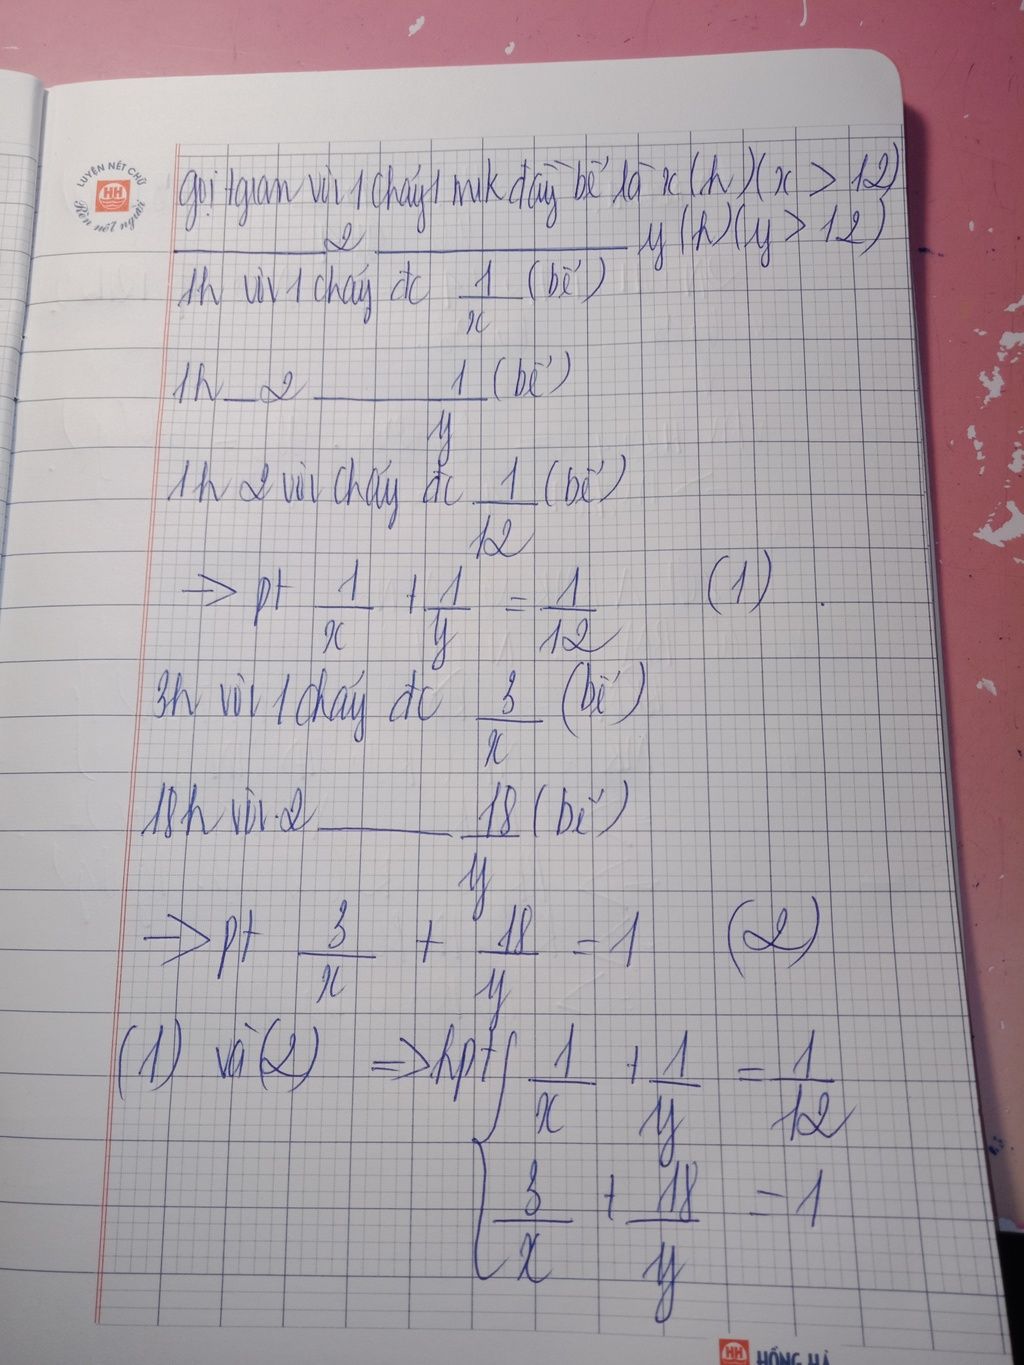 LUYỆN NÉT CHỮ
HH
Rèn nết người
gọi tgian vòi 1 chảy 1 mik đầy bể là x (h) (x > 12)
________ 2 ________ y (h) (y > 12)
1h vòi 1 chảy đc 1/x (bể)
1h __ 2 ________ 1/y (bể)
1h 2 vòi chảy đc 1/12 (bể)
-> pt 1/x + 1/y = 1/12 (1)
3h vòi 1 chảy đc 3/x (bể)
18h vòi 2 ________ 18/y (bể)
-> pt 3/x + 18/y = 1 (2)
(1) và (2) => hpt { 1/x + 1/y = 1/12
3/x + 18/y = 1
HH HỒNG HÀ